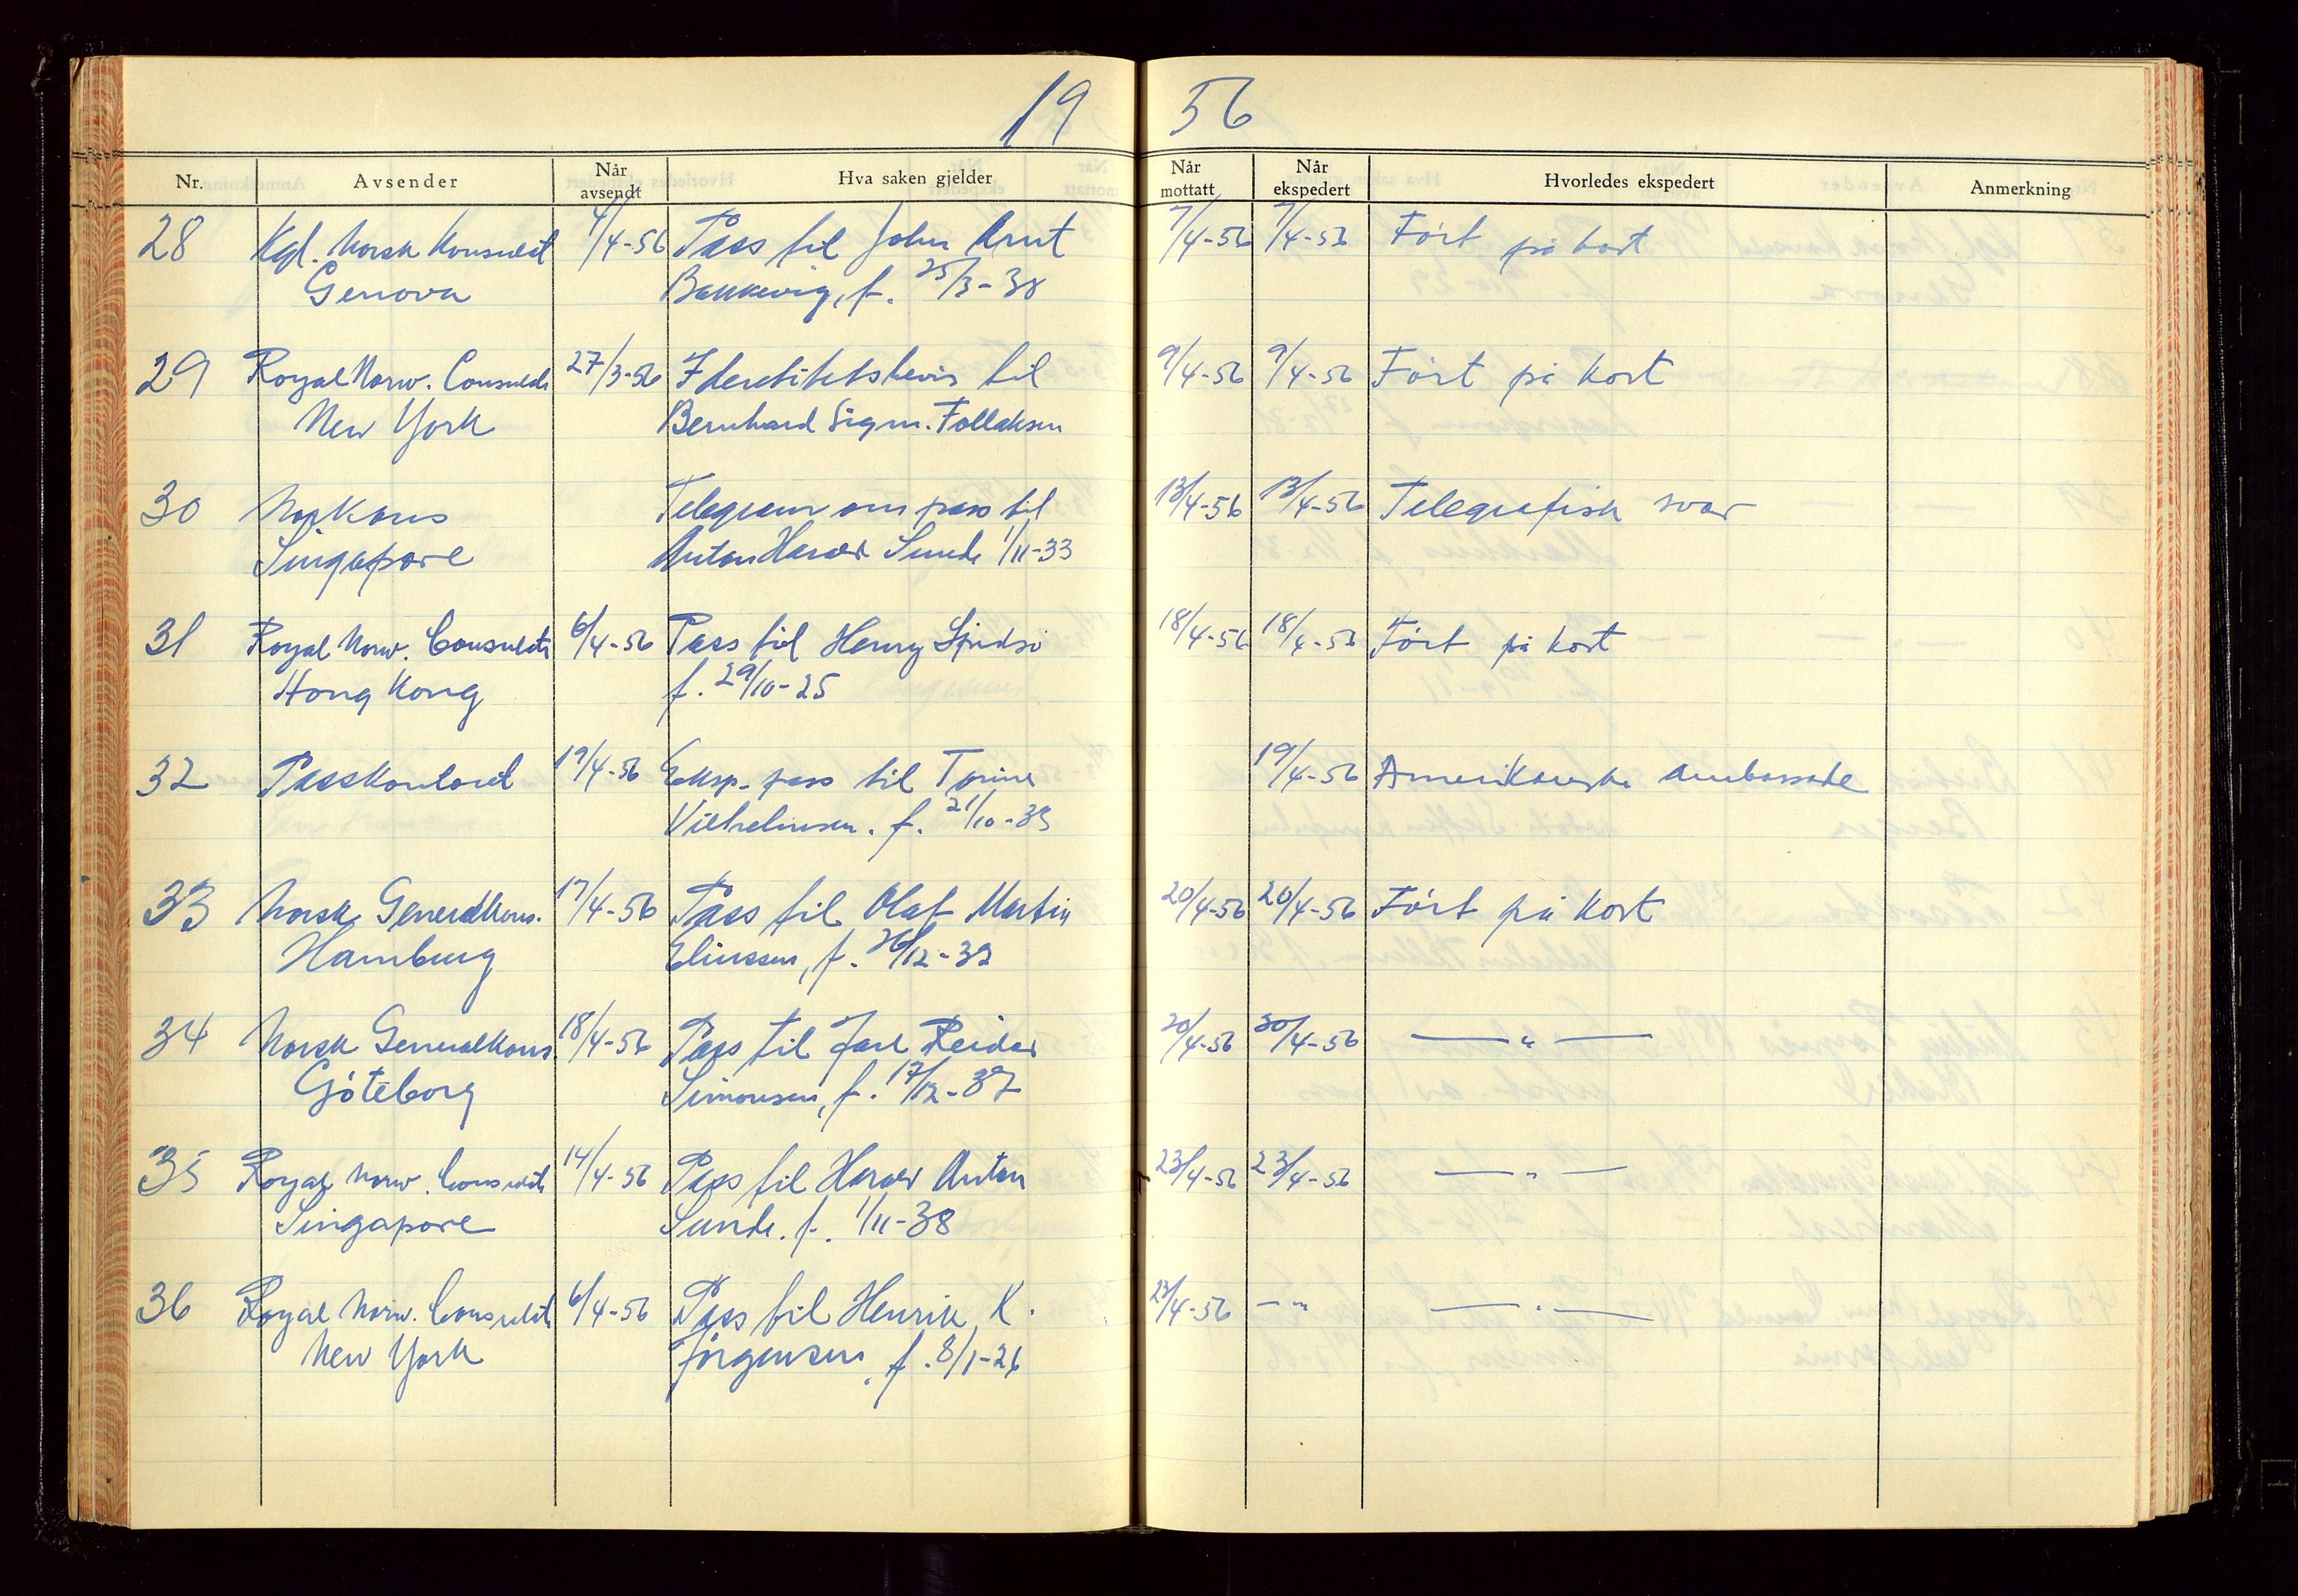 19 56
Nr. Avsender Når avsendt Hva saken gjelder Når mottatt Når ekspedert Hvorledes ekspedert Anmerkning
28 Kgl. Norsk Konsulat 4/4-56 Pass til John Arnt 7/4-56 7/4-56 Ført på kort
Genova Bakkevig, f. 25/3-38
29 Royal Norw. Consulate 27/3-56 Identitetsbevis til 9/4-56 9/4-56 Ført på kort
New York Bernhard Sigm. Follaksen
30 Norkons Telegram om pass til 13/4-56 13/4-56 Telegrafisk svar
Singapore Anton Harald Sunde 1/11-33
31 Royal Norw. Consulate 6/4-56 Pass til Henry 18/4-56 18/4-56 Ført på kort
Hong Kong f. 29/10-25
32 Passkontoret 19/4-56 Eksp. pass til 19/4-56 Amerikanske Ambassade
Vilhelmsen. f. 21/10-33
33 Norsk Generalkons. 17/4-56 Pass til Olaf Martin 20/4-56 20/4-56 Ført på kort
Hamburg Eliassen, f. 26/12-39
34 Norsk Generalkons. 18/4-56 Pass til Jarl Reidar 20/4-56 20/4-56 — " —
Göteborg Simonsen, f. 17/12-37
35 Royal Norw. Consulate 14/4-56 Pass til Harald Anton 23/4-56 23/4-56 — " —
Singapore Sunde. f. 1/11-38
36 Royal Norw. Consulate 6/4-56 Pass til Henrik K. 23/4-56 — " — " —
New York Jørgensen, f. 8/1-26